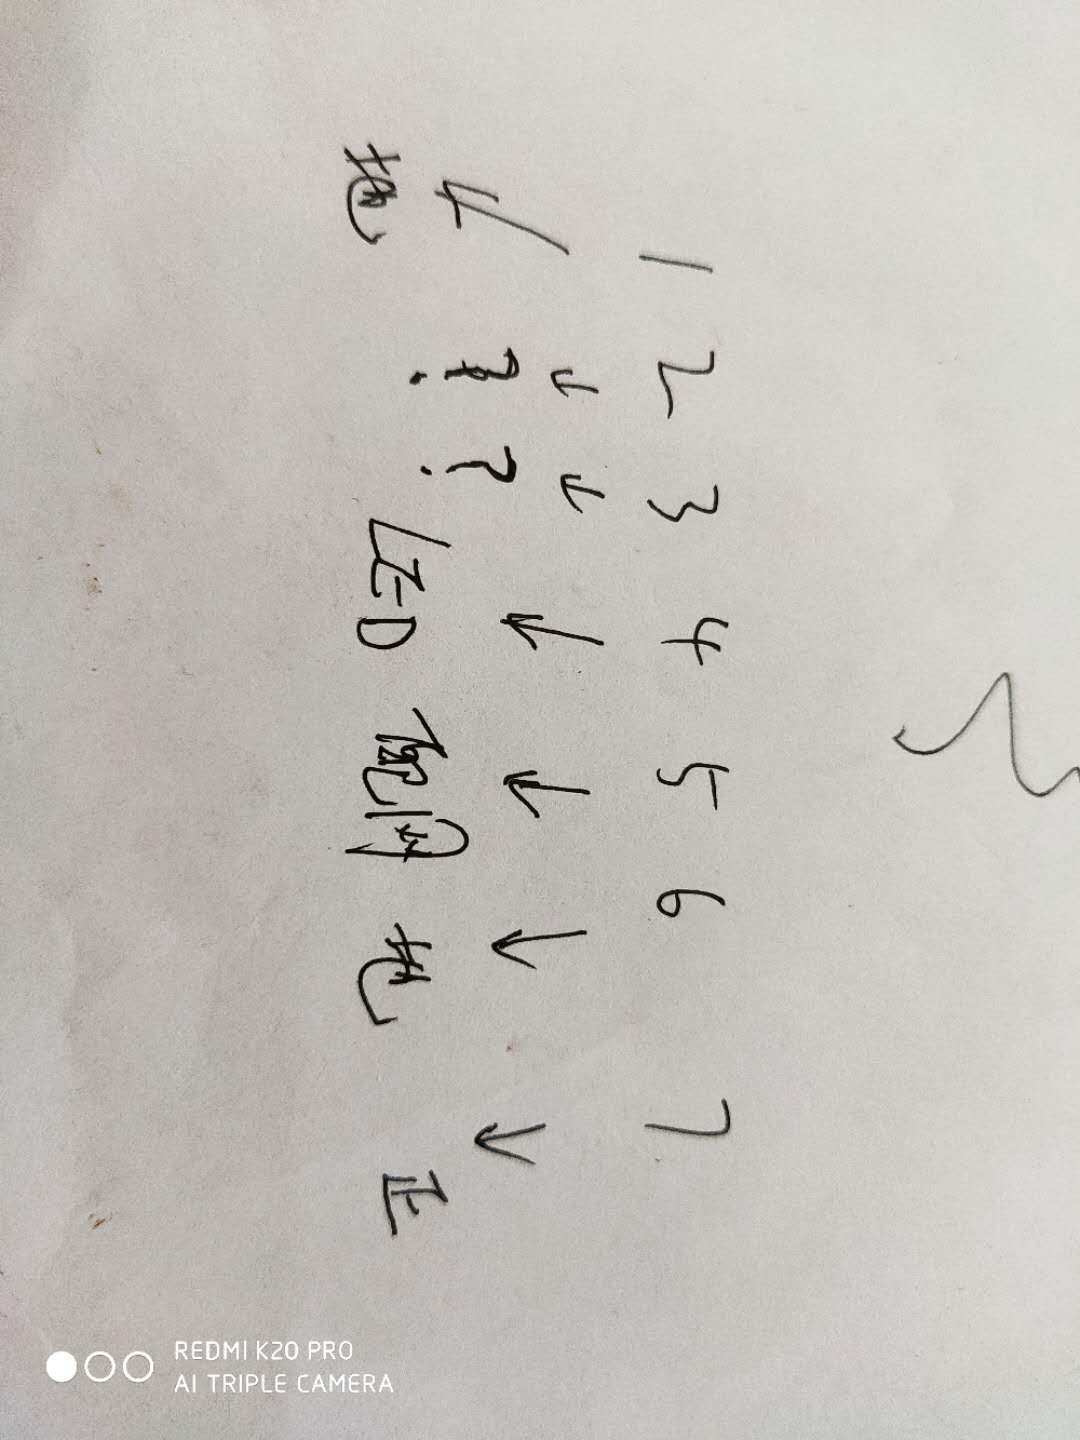 1 2 3 4 5 6 7
↓ ↓ ↓ ↓ ↓ ↓ ↓
地 ? ? LED 配网 地 正
REDMI K20 PRO
AI TRIPLE CAMERA